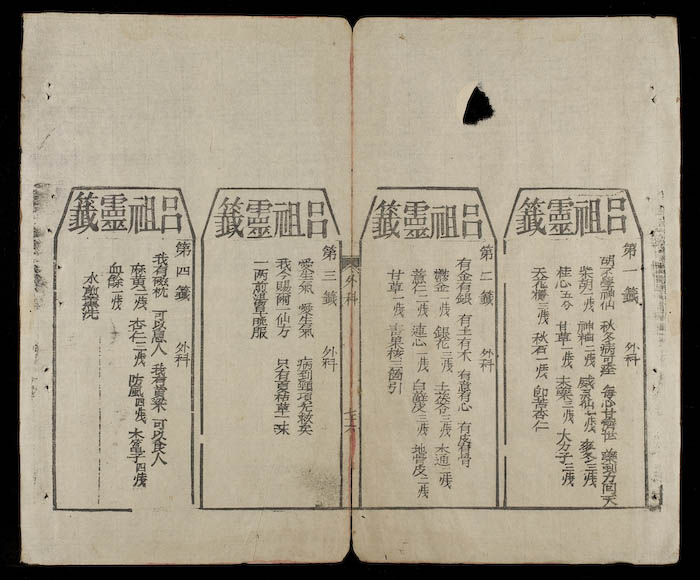 呂祖靈籤
第一籤 外科
胡不學神仙 秋冬病可痊 每心甘 藥到方同天
柴胡二錢 神麯二錢 威灵仙七錢 麥冬三錢
桂心五分 甘草一錢 木藥三錢 大力子三錢
天花粉三錢 秋石一錢 即苦杏仁
呂祖靈籤
第二籤 外科
有金有銀 有土有木 有意有心 有皮有骨
鬱金一錢 銀花三錢 土茯苓三錢 木通二錢
薏仁二錢 連心一錢 白蘚皮三錢 地骨皮二錢
甘草一錢 青果核三箇引
外科
七十六
呂祖靈籤
第三籤 外科
愛生氣 愛生氣 病到頸項先
我今賜爾一仙方 只有夏枯草一味
一兩煎湯早晚服
呂祖靈籤
第四籤 外科
我有磁枕 可以息人 我有黃粱 可以食人
麻黃二錢 杏仁三錢 防風四錢 木 子四錢
血餘一錢
水煎薰洗